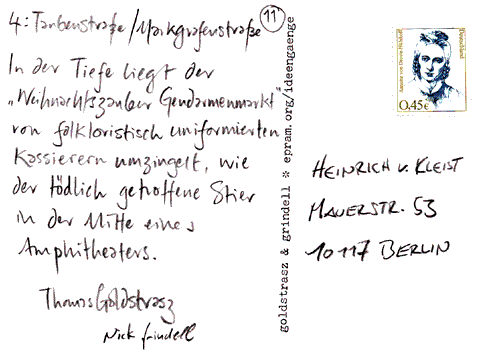 4: Taubenstraße / Markgrafenstraße
11
In der Tiefe liegt der
„Weihnachtszauber Gendarmenmarkt"
von folkloristisch uniformierten
Kassierern umzingelt, wie
der tödlich getroffene Stier
in der Mitte eines
Amphitheaters.
Thomas Goldstrasz
Nick Grindell
goldstrasz & grindell * epram.org/ideengaenge
Annette von Droste-Hülshoff
Deutschland
0,45€
HEINRICH v. KLEIST
MAUERSTR. 53
10117 BERLIN